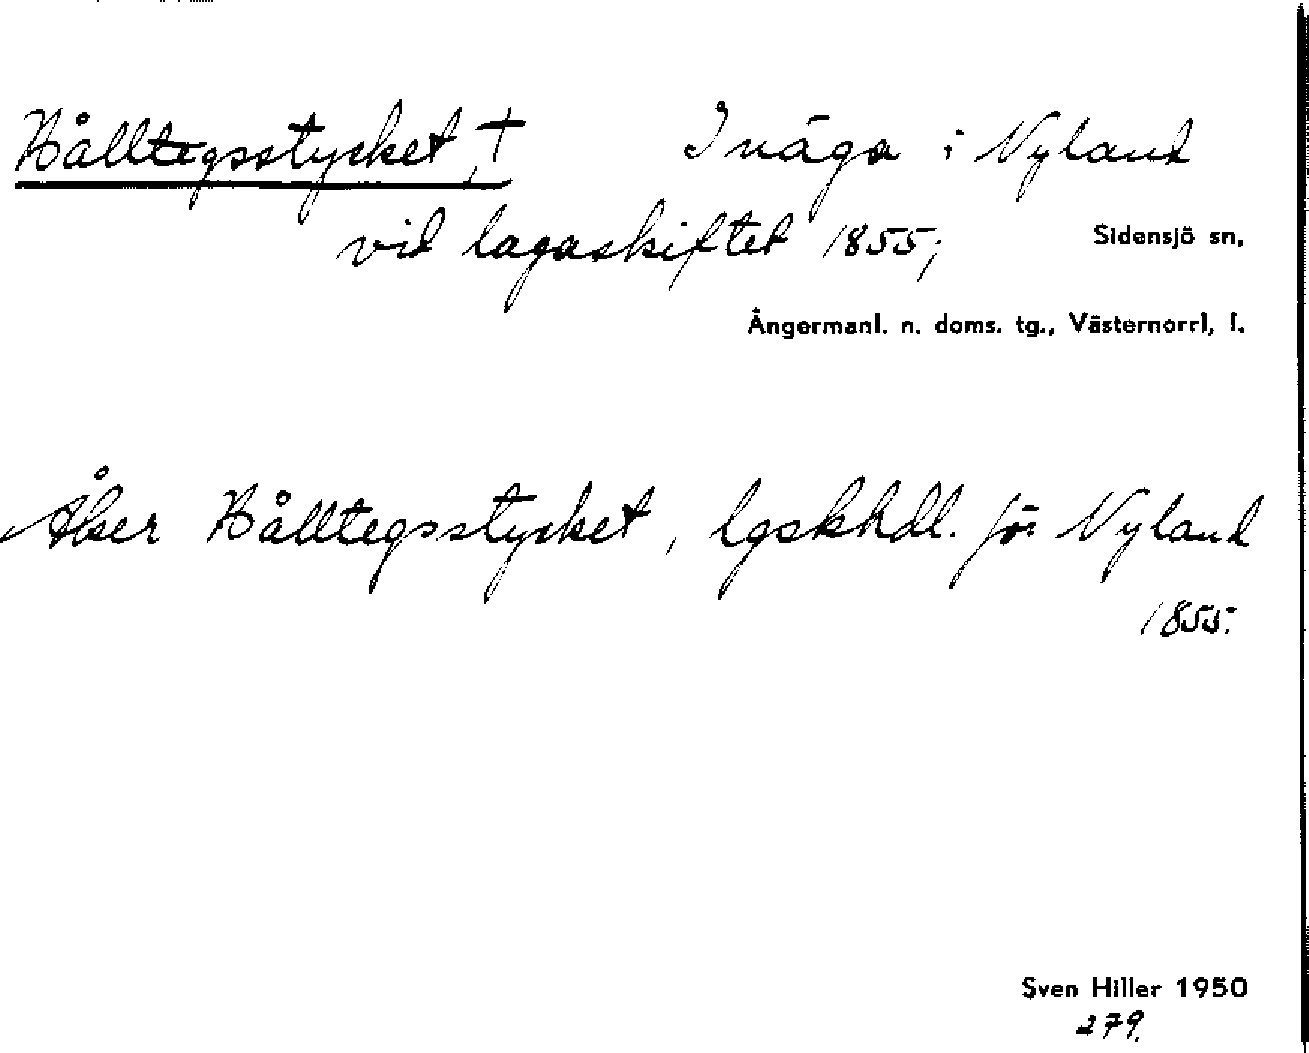 Bålltegsstycket, † Inäga i Nyland
vid lagaskiftet 1855;
Sidensjö sn,
Ångermanl. n. doms. tg., Västernorrl, l.
Åker Bålltegsstycket, lgskhdl. för Nyland
1855.
Sven Hiller 1950
279.